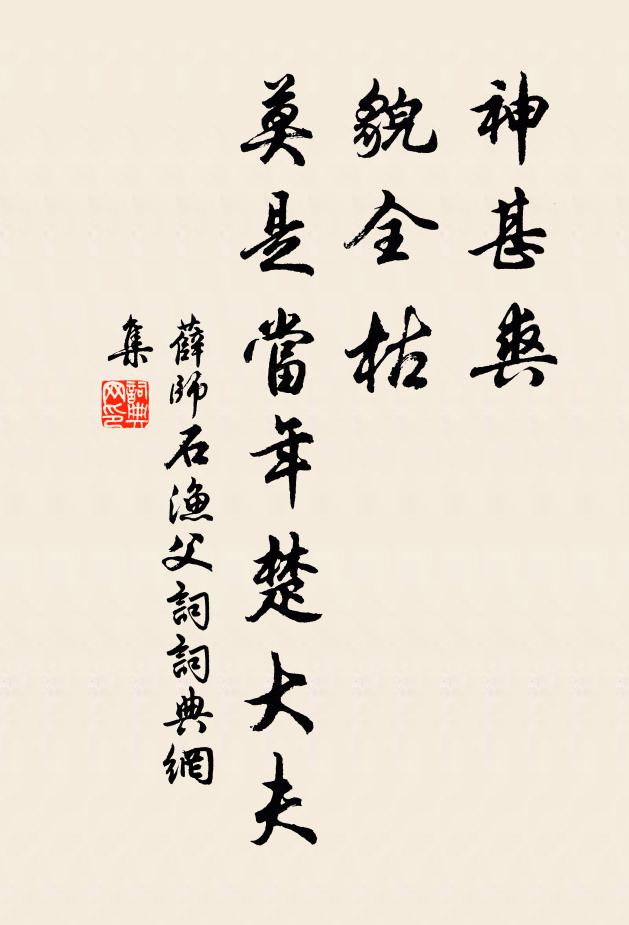 神甚爽
貌全枯
莫是當年楚大夫
薛師石漁父詞詞典網
集
詞典網印